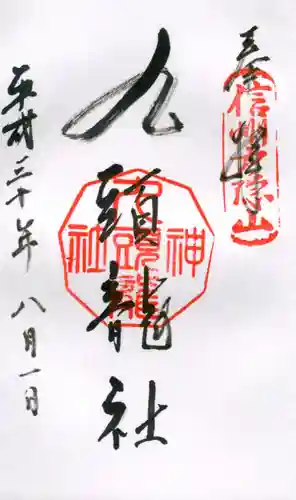 奉拝
信州戸隠山
九頭龍社
九頭龍神社
平成三十年八月一日